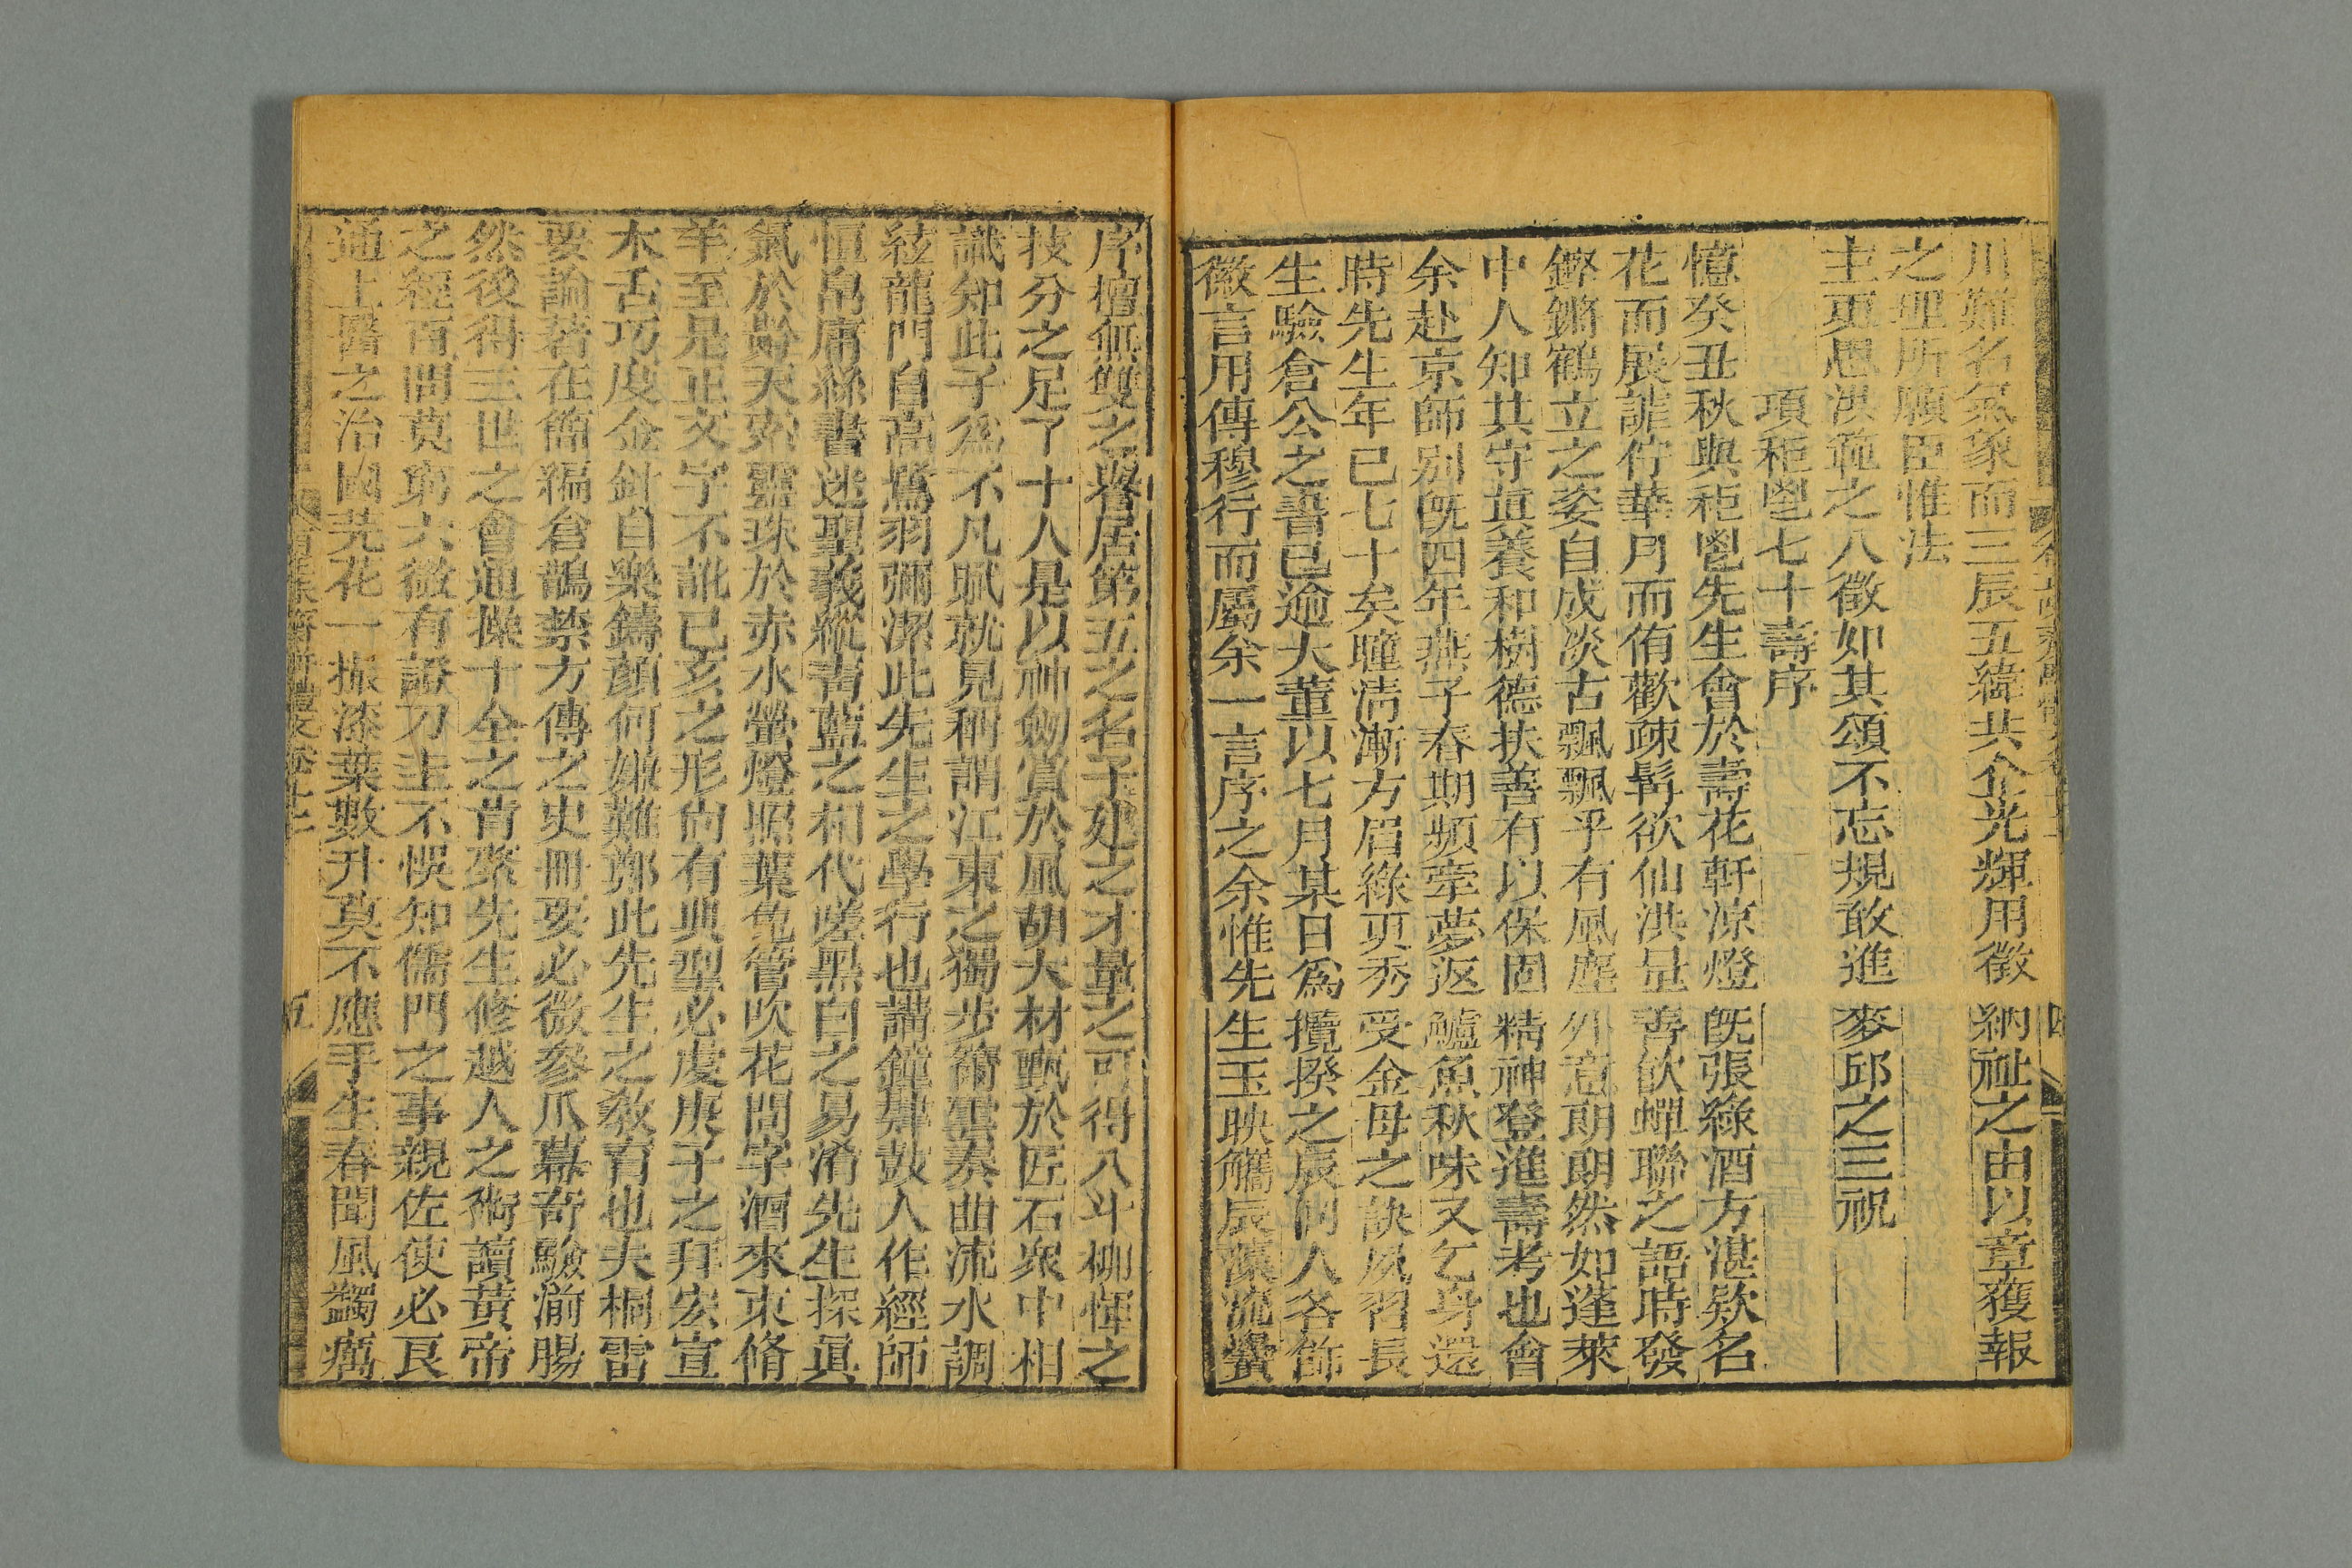 川難名氣象而三辰五緯共企光輝用徵納祉之由以章獲報
之理所願臣惟法
主更思洪範之八徵如其頌不忘規敢進麥邱之三祝
項秬鬯七十壽序
憶癸丑秋與秬鬯先生會於壽花軒凉燈旣張綠酒方湛歘名
花而展謔佇華月而侑歡疎髯欲仙洪量善飲蟬聯之語時發
鏗鏘鶴立之姿自成淡古飄飄乎有風塵外意朗朗然如蓬萊
中人知其守眞養和樹德扶善有以保固精神登進壽考也會
余赴京師別旣四年燕子春期頻牽夢返鱸魚秋味又乞身還
時先生年已七十矣瞳清漸方眉綠更秀受金母之訣夙習長
生驗倉公之書已逾大董以七月某日爲攬揆之辰同人各飾
徽言用傳穆行而屬余一言序之余惟先生玉映觿辰藻流黌
序擅無雙之譽居第五之名子建之才量之可得八斗柳惲之
技分之足了十人是以神劒賞於風胡大材甄於匠石衆中相
識知此子爲不凡賦就見稱謂江東之獨步籥雲奏曲流水調
絃龍門自高鷺羽彌潔此先生之學行也講鐘肆鼓人作經師
恒帛庸絲書迷聖義縱靑藍之相代嗟黑白之易淆先生探眞
氣於黔天索靈珠於赤水螢燈照葉兔管吹花問字酒來束脩
羊至是正文字不訛己亥之形向有典型必虔庚子之拜宏宣
木舌巧度金針自樂鑄顔何嫌難鄭此先生之敎育也夫桐雷
要論著在簡編倉鵲禁方傳之史冊要必微參爪幕奇驗湔腸
然後得三世之會通操十全之肯綮先生修越人之術讀黄帝
之經百問莫窮六微有證刀圭不悞知儒門之事親佐使必良
通上醫之治國芫花一撮漆葉數升莫不應手生春聞風蠲癘
五